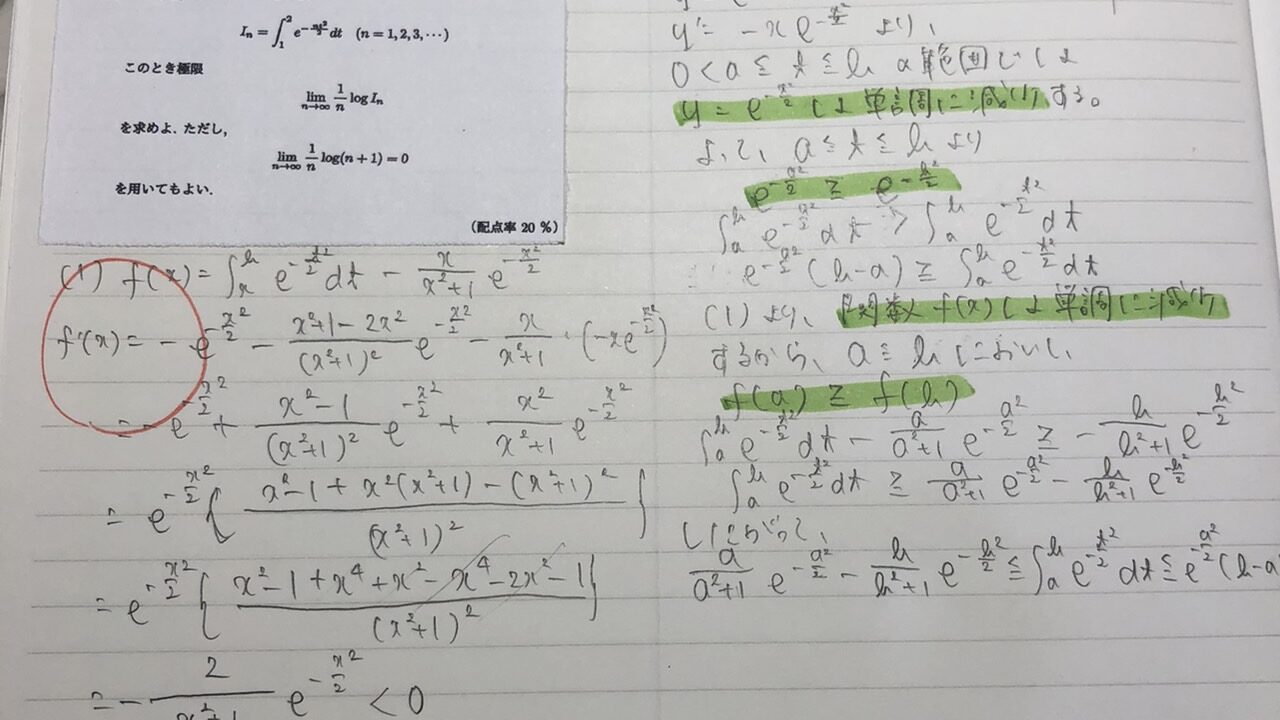 Iₙ = ∫₁² e^{-nt²/2} dt (n = 1, 2, 3, ⋯)
このとき極限
lim_{n→∞} 1/n log Iₙ
を求めよ．ただし，
lim_{n→∞} 1/n log(n + 1) = 0
を用いてもよい．
(配点率 20 %)
(1) f(x) = ∫ₓᵇ e^{-t²/2} dt - x/(x²+1) e^{-x²/2}
f'(x) = - e^{-x²/2} - (x²+1-2x²)/(x²+1)² e^{-x²/2} - x/(x²+1) · (-xe^{-x²/2})
= - e^{-x²/2} + (x²-1)/(x²+1)² e^{-x²/2} + x²/(x²+1) e^{-x²/2}
= e^{-x²/2} { (x²-1+x²(x²+1)-(x²+1)²)/(x²+1)² }
= e^{-x²/2} { (x²-1+x⁴+x²-x⁴-2x²-1)/(x²+1)² }
= - 2/ e^{-x²/2} < 0
y' = -x e^{-x²/2} より、
0 < a ≦ t ≦ b の範囲では
y = e^{-x²/2} は単調に減少する。
よって、a ≦ t ≦ b より
e^{-a²/2} ≧ e^{-b²/2}
∫ₐᵇ e^{-a²/2} dt > ∫ₐᵇ e^{-t²/2} dt
∴ e^{-a²/2} (b-a) ≧ ∫ₐᵇ e^{-t²/2} dt
(1) より、関数 f(x) は単調に減少
するから、a ≦ b において、
f(a) ≧ f(b)
∫ₐᵇ e^{-t²/2} dt - a/(a²+1) e^{-a²/2} ≧ - b/(b²+1) e^{-b²/2}
∫ₐᵇ e^{-t²/2} dt ≧ a/(a²+1) e^{-a²/2} - b/(b²+1) e^{-b²/2}
したがって、
a/(a²+1) e^{-a²/2} - b/(b²+1) e^{-b²/2} ≦ ∫ₐᵇ e^{-t²/2} dt ≦ e^{-a²/2} (b-a